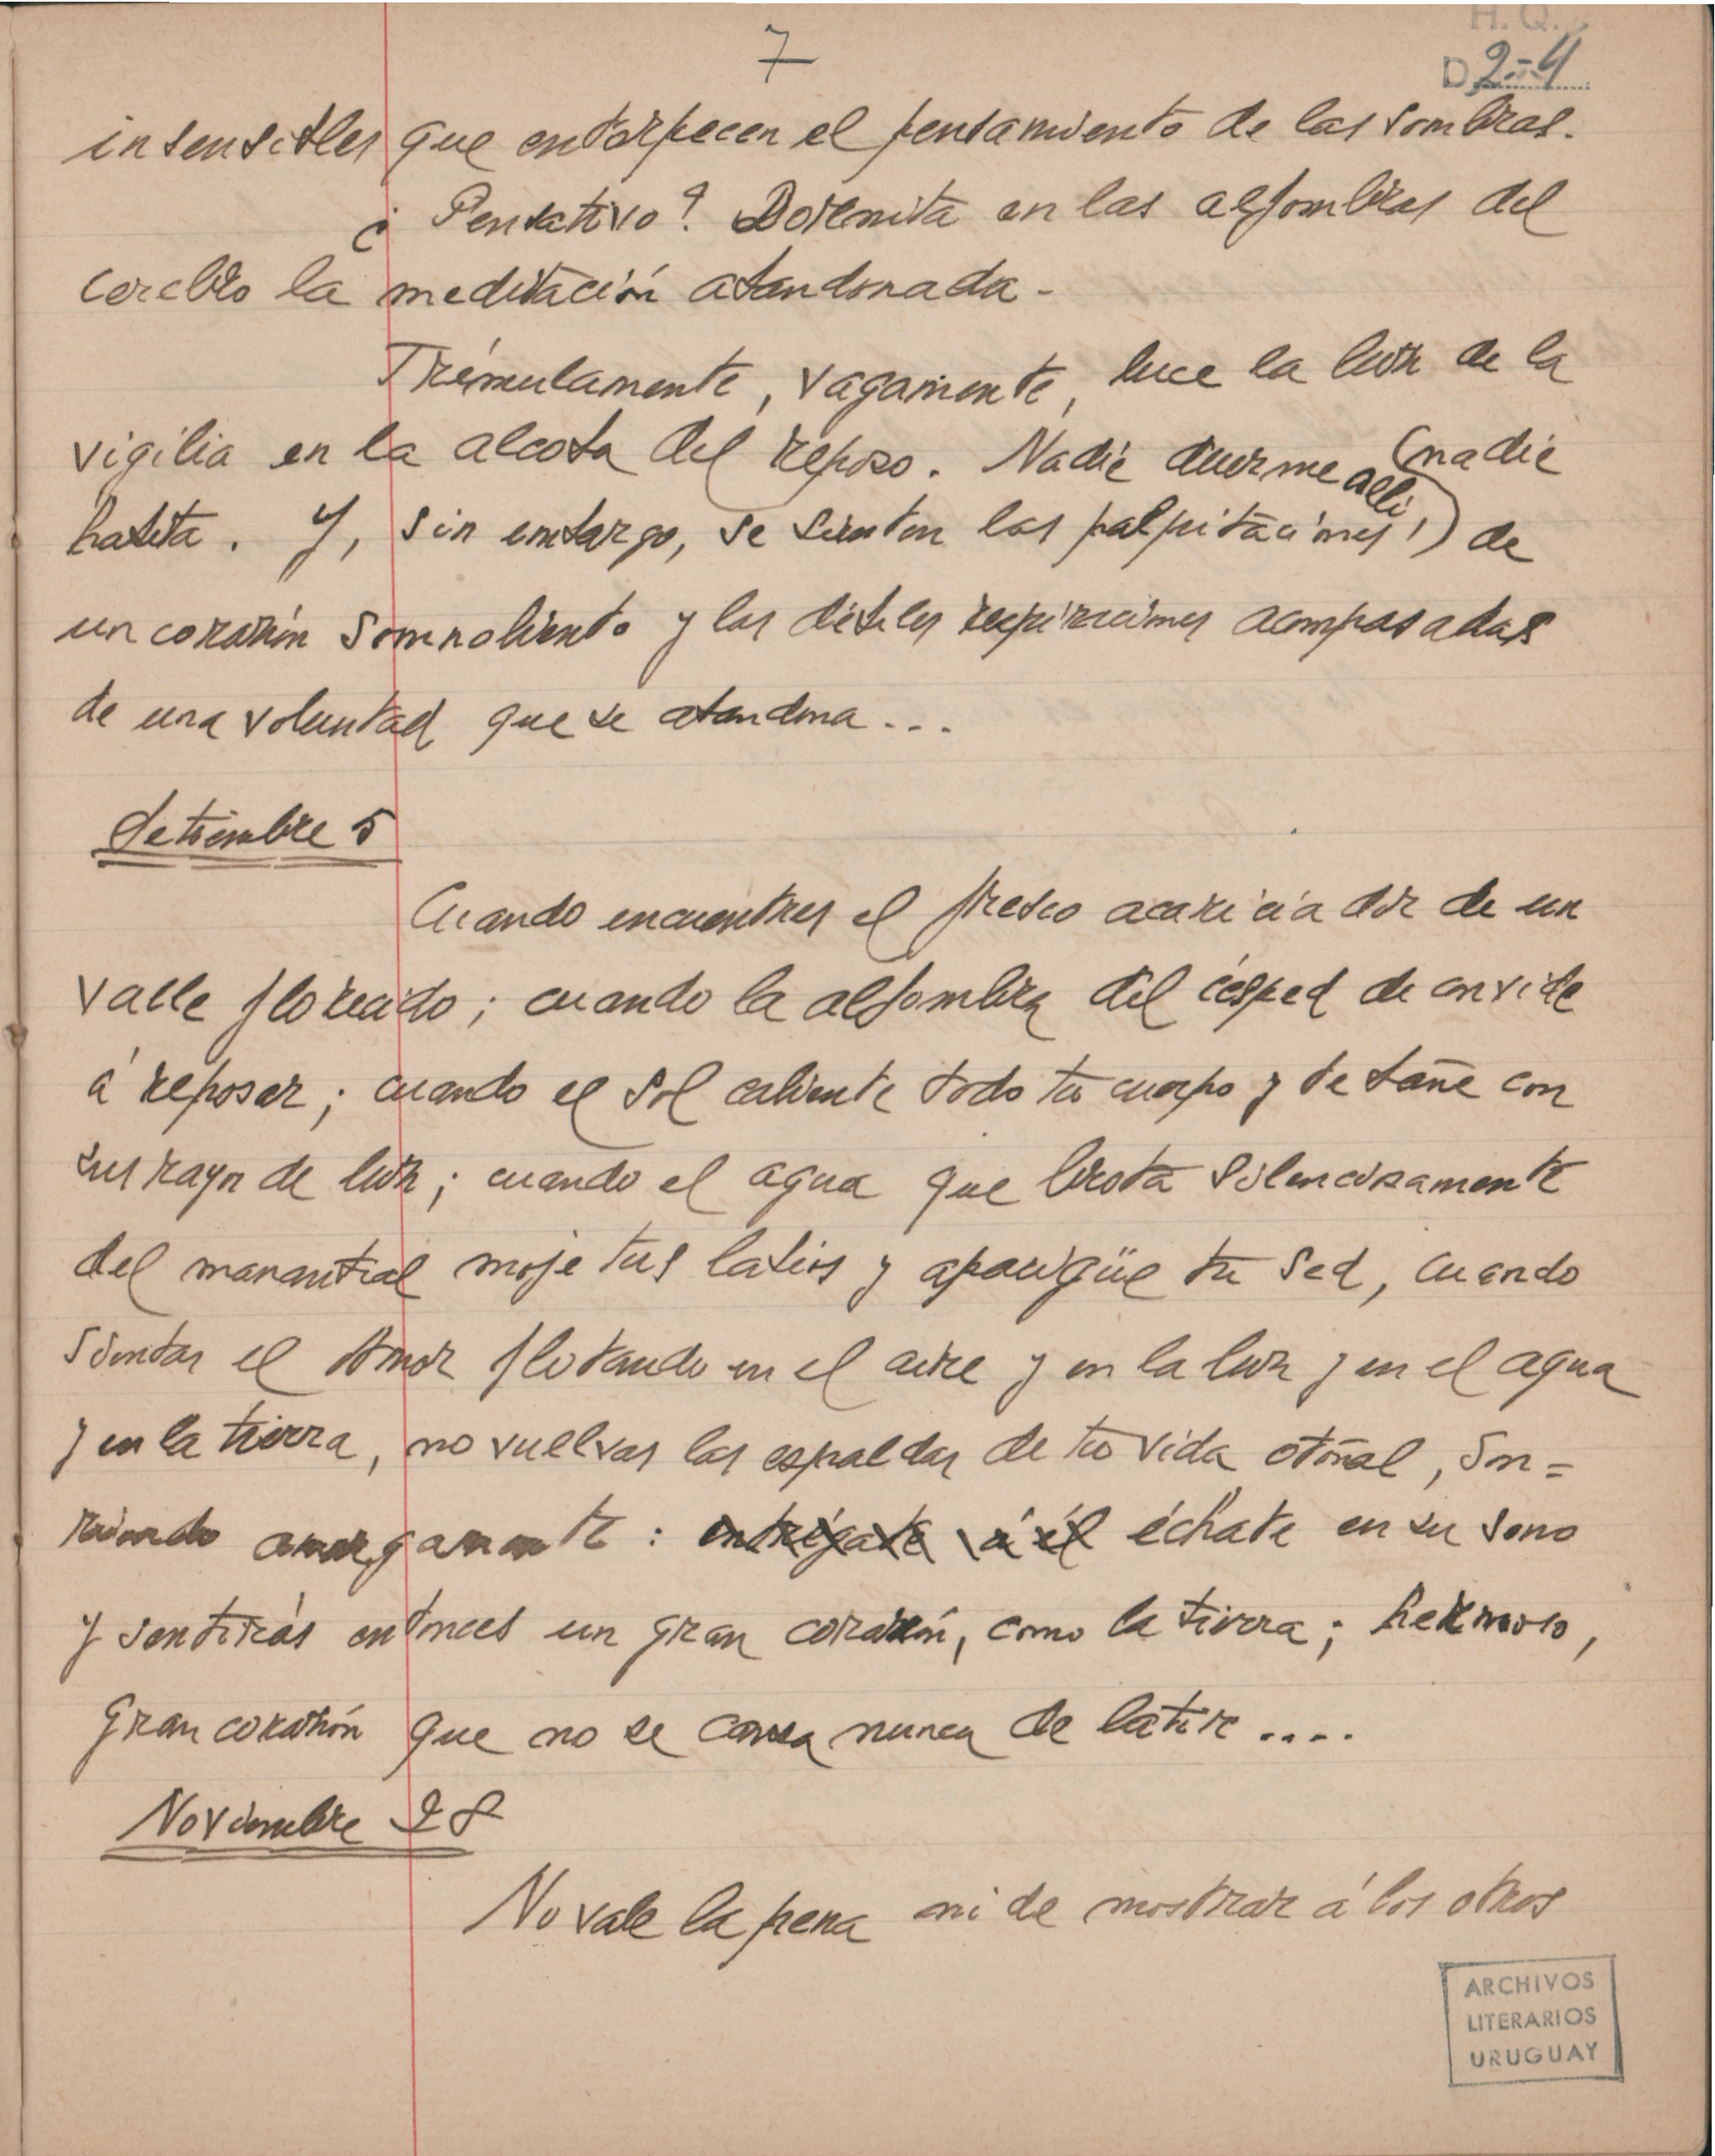 7
H. Q.
D 2-4
insensibles que entorpecen el pensamiento de las sombras.
¿Pensativo? Dormita en las alfombras del
cerebro la meditación abandonada.
Trémulamente, vagamente, luce la luz de la
vigilia en la alcoba del reposo. Nadie duerme allí (nadie
habita. Y, sin embargo, se sienten las palpitaciones!) de
un corazón somnoliento y las débiles respiraciones acompasadas
de una voluntad que se abandona...
Setiembre 5
Cuando encuentres el fresco acariciador de un
valle floreado; cuando la alfombra del césped te convide
á reposar; cuando el sol caliente todo tu cuerpo y te bañe con
sus rayos de luz; cuando el agua que brota silenciosamente
del manantial moje tus labios y apacigüe tu sed, cuando
sientas el Amor flotando en el aire y en la luz y en el agua
y en la tierra, no vuelvas las espaldas de tu vida otoñal, son=
riendo amargamente: entrégate á él échate en su seno
y sentirás entonces un gran corazón, como la tierra; hermoso,
gran corazón que no se cansa nunca de latir....
Noviembre 28
No vale la pena ni de mostrar á los otros
ARCHIVOS
LITERARIOS
URUGUAY